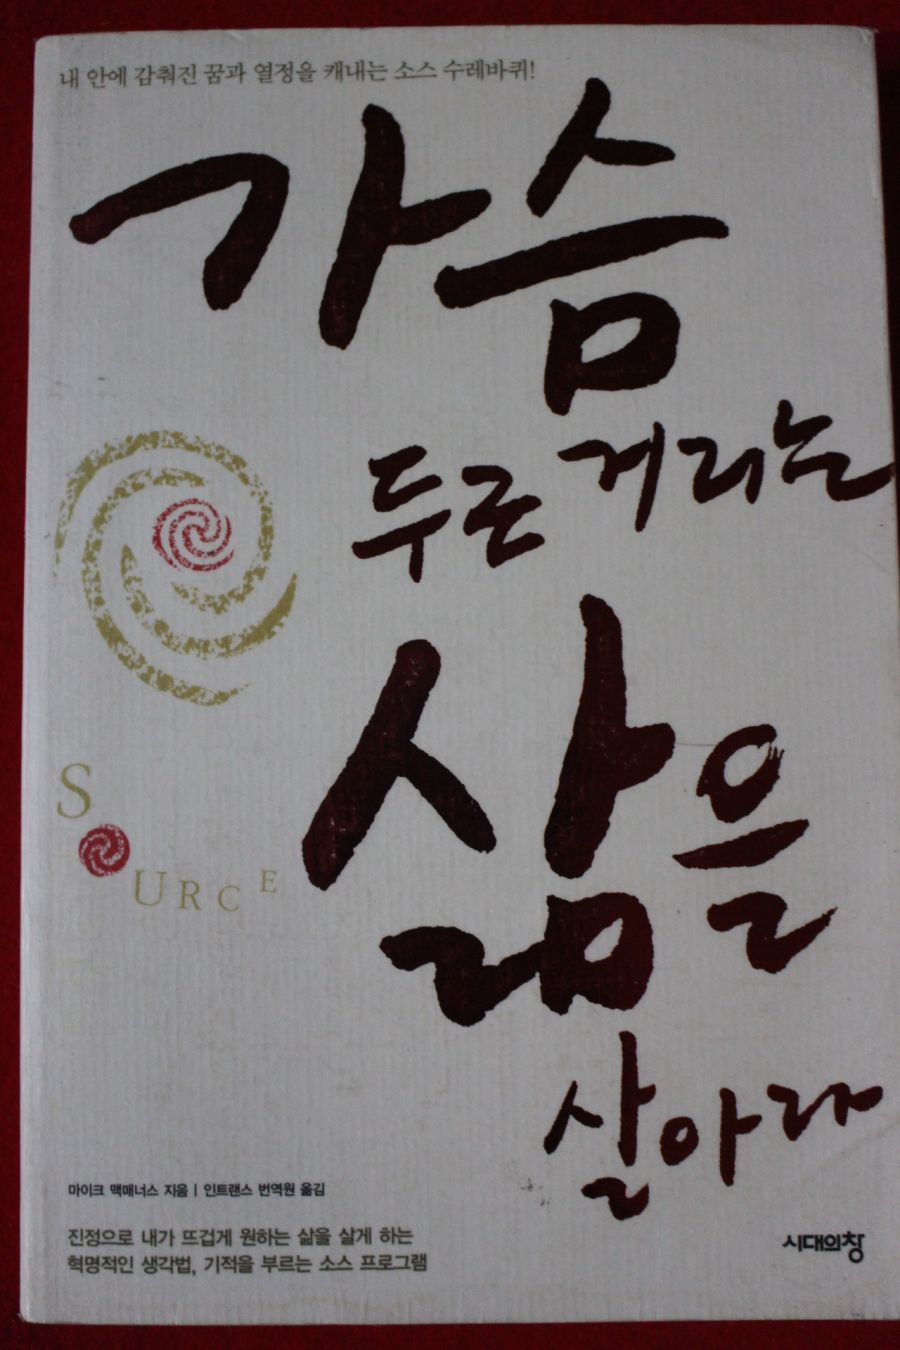 내 안에 감춰진 꿈과 열정을 캐내는 소스 수레바퀴!
가슴
두근거리는
삶을
살아라
SOURCE
마이크 맥매너스 지음 | 인트랜스 번역원 옮김
진정으로 내가 뜨겁게 원하는 삶을 살게 하는
혁명적인 생각법, 기적을 부르는 소스 프로그램
시대의창